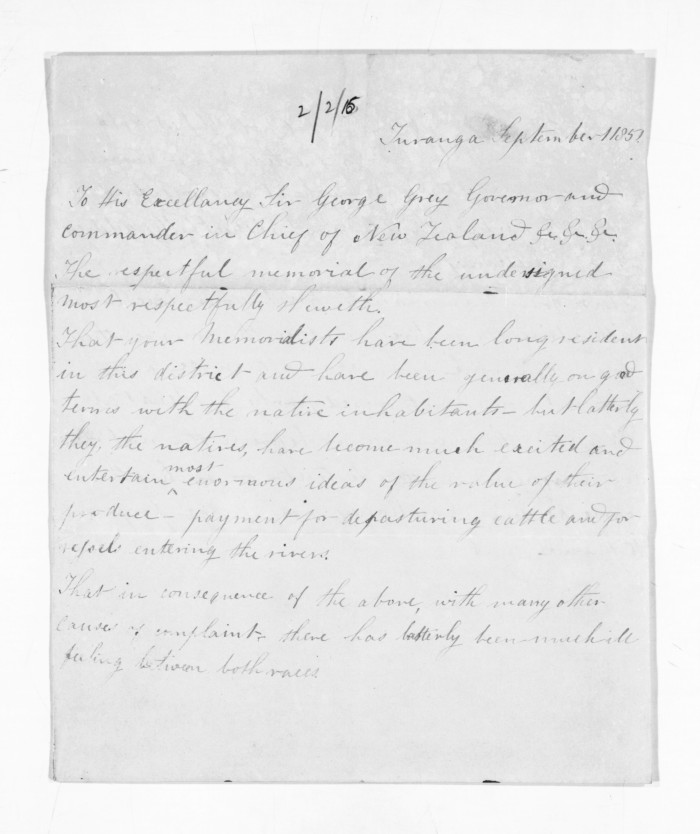 2/2/15
Turanga September 1 1851
To His Excellancy Sir George Grey Governor and
commander in Chief of New Zealand &c. &c. &c.
The espectful memorial of the undersigned
most respectfully sheweth.
That your Memorialists have been long resident
in this district and have been generally on good
terms with the native inhabitants – but latterly
they, the natives, have become much excited and
entertain most enormous ideas of the value of their
produce – payment for depasturing cattle and for
vessels entering the rivers.
That in consequence of the above, with many other
causes of complaint, there has latterly been much ill
feeling between both races